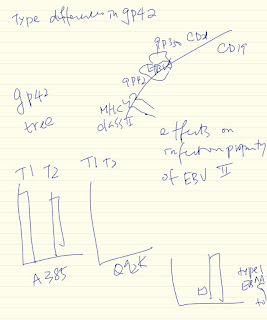 Type differences in gp42
gp350 CD21
CD19
EBV
gp42
MHC
class II
gp42
tree
effects on
infection property
of EBV II
T1 T2
T1 T2
A385
Q92K
type 1
EBNA
to